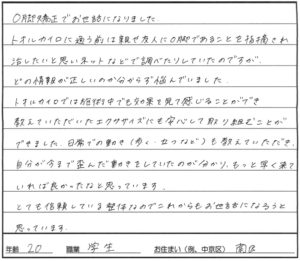 O脚矯正でお世話になりました
トオルカイロに通う前は親や友人にO脚であることを指摘され
治したいと思いネットなどで調べたりしていたのですが、
どの情報が正しいのか分からず悩んでいました。
トオルカイロでは施術中でも効果を見て感じることができ
教えていただいたエクササイズにも安心して取り組むことが
できました。日常での動き(歩く・立つなど)も教えていただき、
自分が今まで歪んだ動きをしていたのが分かり、もっと早く来て
いれば良かったなと思っています。
とても信頼している整体なのでこれからもお世話になろうと
思っています。
年齢 20 職業 学生 お住まい(例、中京区) 南区